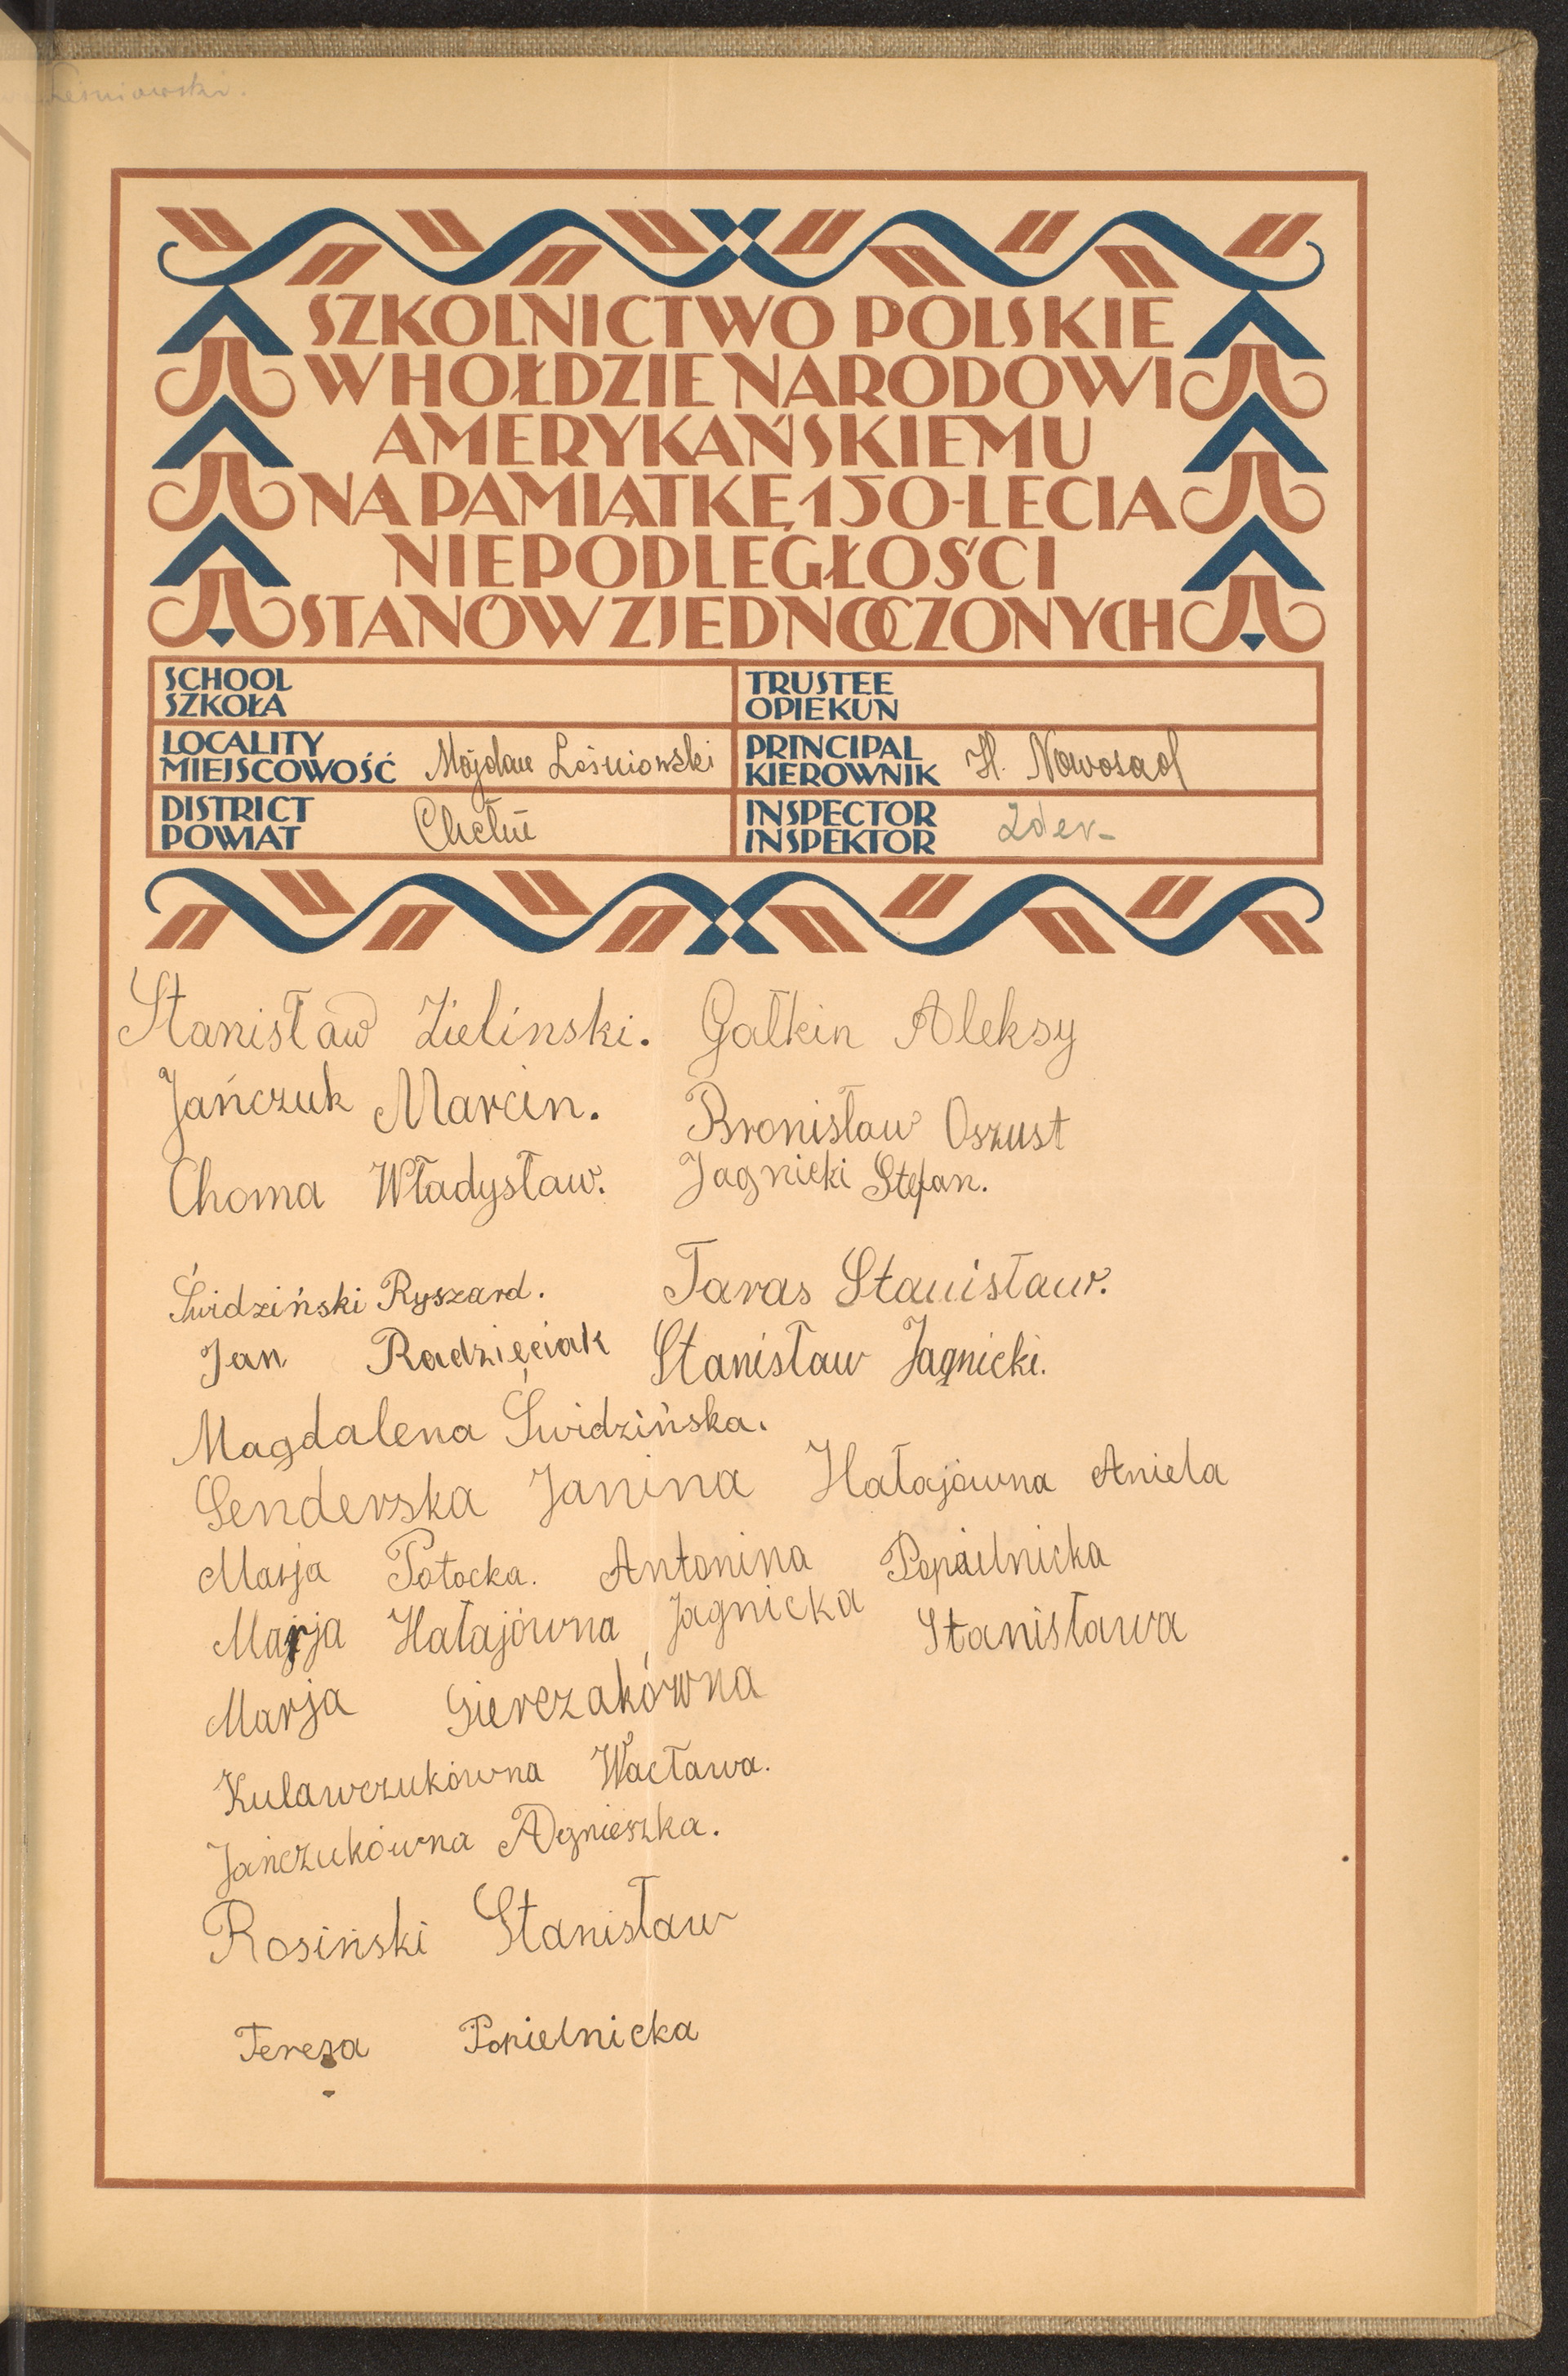 Leśniowski.
SZKOLNICTWO POLSKIE
W HOŁDZIE NARODOWI
AMERYKAŃSKIEMU
NA PAMIĄTKĘ 150-LECIA
NIEPODLEGŁOŚCI
STANÓW ZJEDNOCZONYCH
SCHOOL
SZKOŁA
TRUSTEE
OPIEKUN
LOCALITY
MIEJSCOWOŚĆ Majdan Leśniowski
PRINCIPAL
KIEROWNIK H. Nowosad
DISTRICT
POWIAT Chełm
INSPECTOR
INSPEKTOR
Stanisław Zieliński. Gałkin Aleksy
Jańczuk Marcin. Bronisław Oszust
Choma Władysław. Jagnicki Stefan.
Świdziński Ryszard. Taras Stanisław.
Jan Radzięciak Stanisław Jagnicki.
Magdalena Świdzińska.
Senderska Janina Hałajówna Aniela
Marja Potocka. Antonina Popielnicka
Marja Hałajówna Jagnicka Stanisława
Marja Gierczakówna
Kulawczukówna Wacława.
Jańczukówna Agnieszka.
Rosiński Stanisław
Tereza Popielnicka